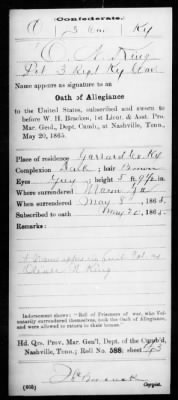 (Confederate.)
O 3 Cav. Ky
O. A. King
Pvt 3 Regt Ky Cav.
Name appears as signature to an
Oath of Allegiance
to the United States, subscribed and sworn to
before W. H. Bracken, 1st Lieut. & Asst. Pro.
Mar. Genl., Dept. Cumb., at Nashville, Tenn.,
May 20, 1865.
Place of residence Garrard Co Ky
Complexion Dark; hair Brown
Eyes Grey; height 5 ft. in.
Where surrendered Macon Ga
When surrendered May 8, 1865.
Subscribed to oath May 20, 1865.
Remarks:
Name appears in
King
Indorsement shows: "Roll of Prisoners of war, who Vol-
untarily surrendered themselves, took the Oath of Allegiance,
and were allowed to return to their homes."
Hd. Qrs. Prov. Mar. Gen'l., Dept. of the Cumb'd,
Nashville, Tenn.; Roll No. 588; sheet 43
(605) Copyist.